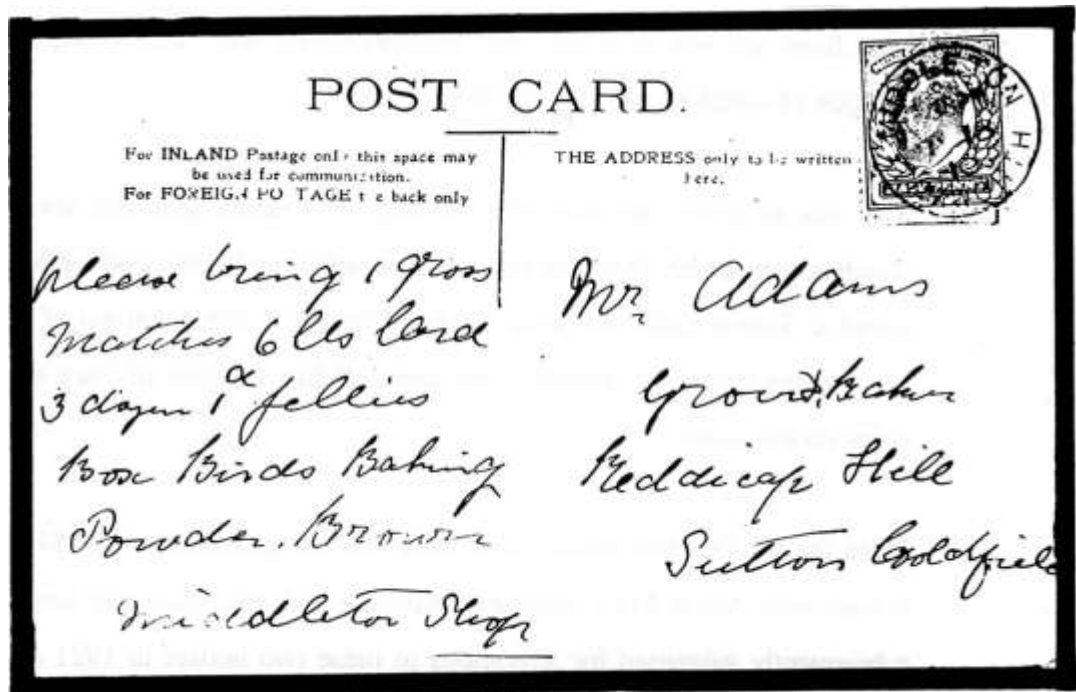 POST CARD.
For INLAND Postage only this space may
be used for communication.
For FOREIGN POSTAGE the back only
THE ADDRESS only to be written
here.
please bring 1 gross
Matches 6 lbs lard
3 dozen 1d Jellies
Box Birds Baking
Powder. Brown
Middleton Shop
Mr Adams
Grocer & Baker
Reddicap Hill
Sutton Coldfield